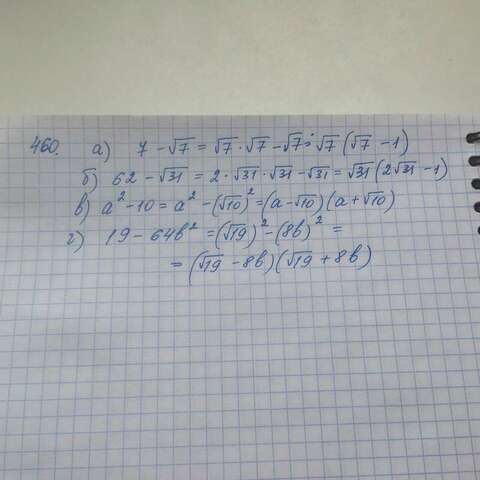 460. а) 7 - √7 = √7 · √7 - √7 = √7 (√7 - 1)
б) 62 - √31 = 2 · √31 · √31 - √31 = √31 (2√31 - 1)
в) a² - 10 = a² - (√10)² = (a - √10) (a + √10)
г) 19 - 64b² = (√19)² - (8b)² =
= (√19 - 8b) (√19 + 8b)